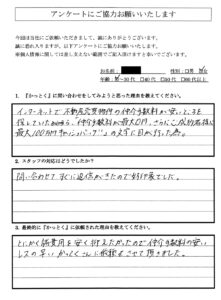 アンケートにご協力お願いいたします
今回は当社にご依頼いただきまして、誠にありがとうございます。
誠に恐れ入りますが、以下アンケートにご協力お願いいたします。
※個人情報に関しては差し支えない範囲でご記入頂けますと幸いでございます。
お名前
性別:□男
年齢:
30代 □40代 □50代 □60代以上
1. 『かっとく』に問い合わせをしてみようと思った理由を教えてください。
インターネットで不動産売買物件の仲介手数料が安いところを
探していた
仲介手数料が最大0円、さらにご成約者様に
最大100万円キャッシュバック!!の文字に目が行った為。
2. スタッフの対応はどうでしたか?
問い合わせてすぐに返信がきたので好印象でした。
3. 最終的に『かっとく』に依頼された理由を教えてください。
とにかく諸費用を安く抑えたかったので仲介手数料の安い
レスの早いかっとくさんに依頼をさせて頂きました。